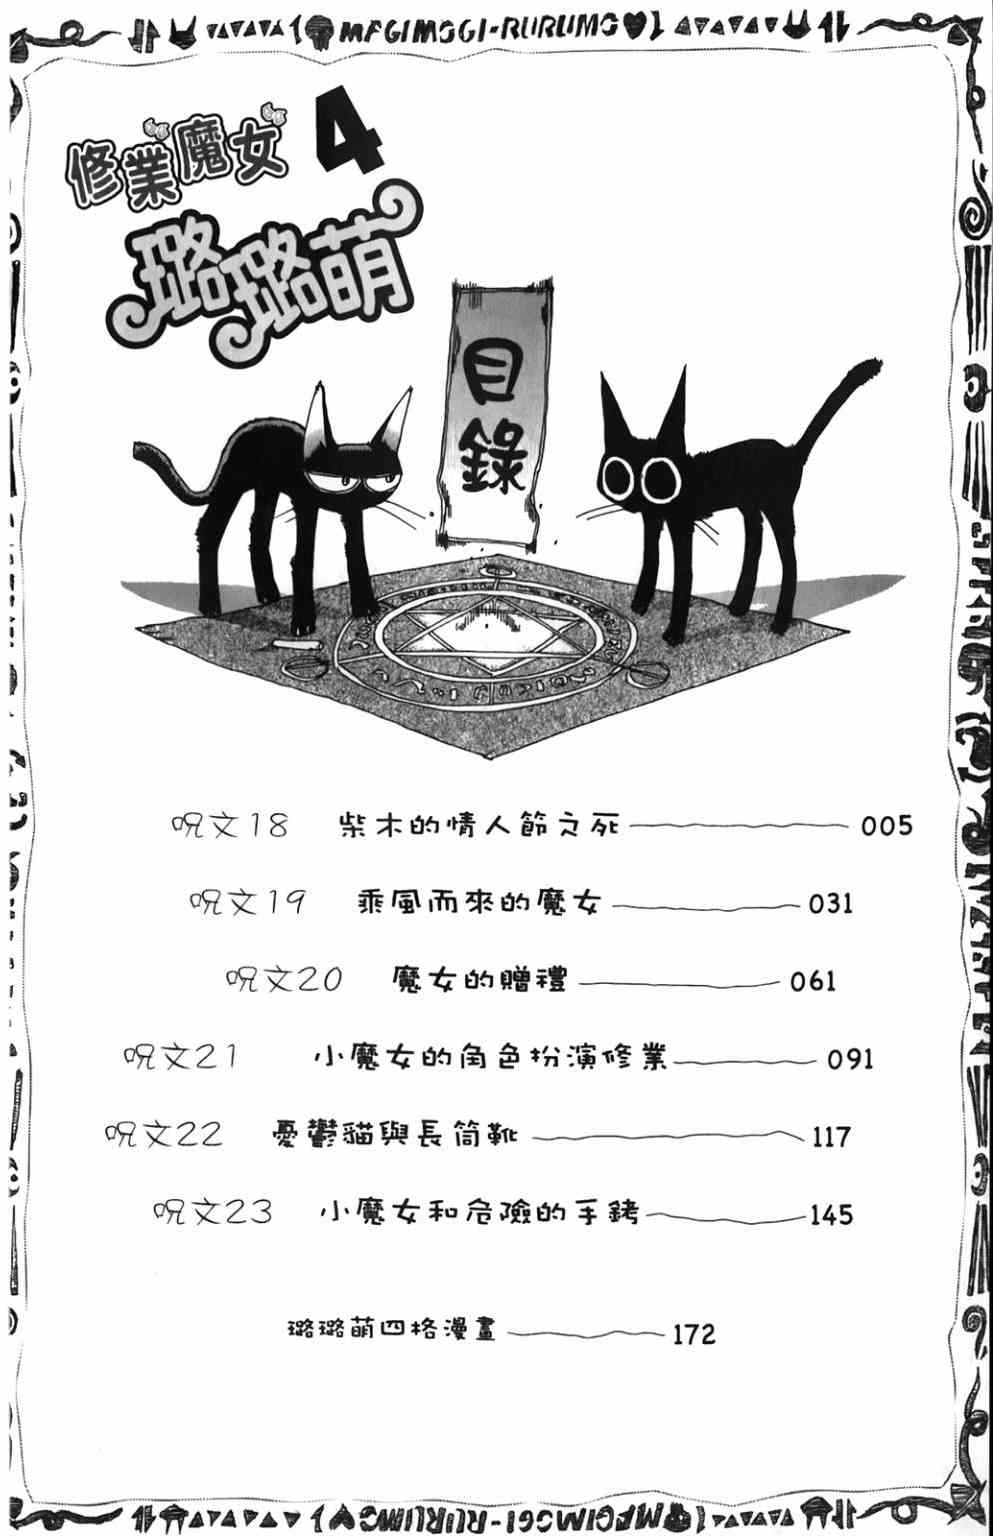 MAGIMOGI-RURUMO
修業魔女 4
璐璐萌
目錄
呪文18 柴木的情人節之死 005
呪文19 乘風而來的魔女 031
呪文20 魔女的贈禮 061
呪文21 小魔女的角色扮演修業 091
呪文22 憂鬱貓與長筒靴 117
呪文23 小魔女和危險的手銬 145
璐璐萌四格漫畫 172
MAGIMOGI-RURUMO